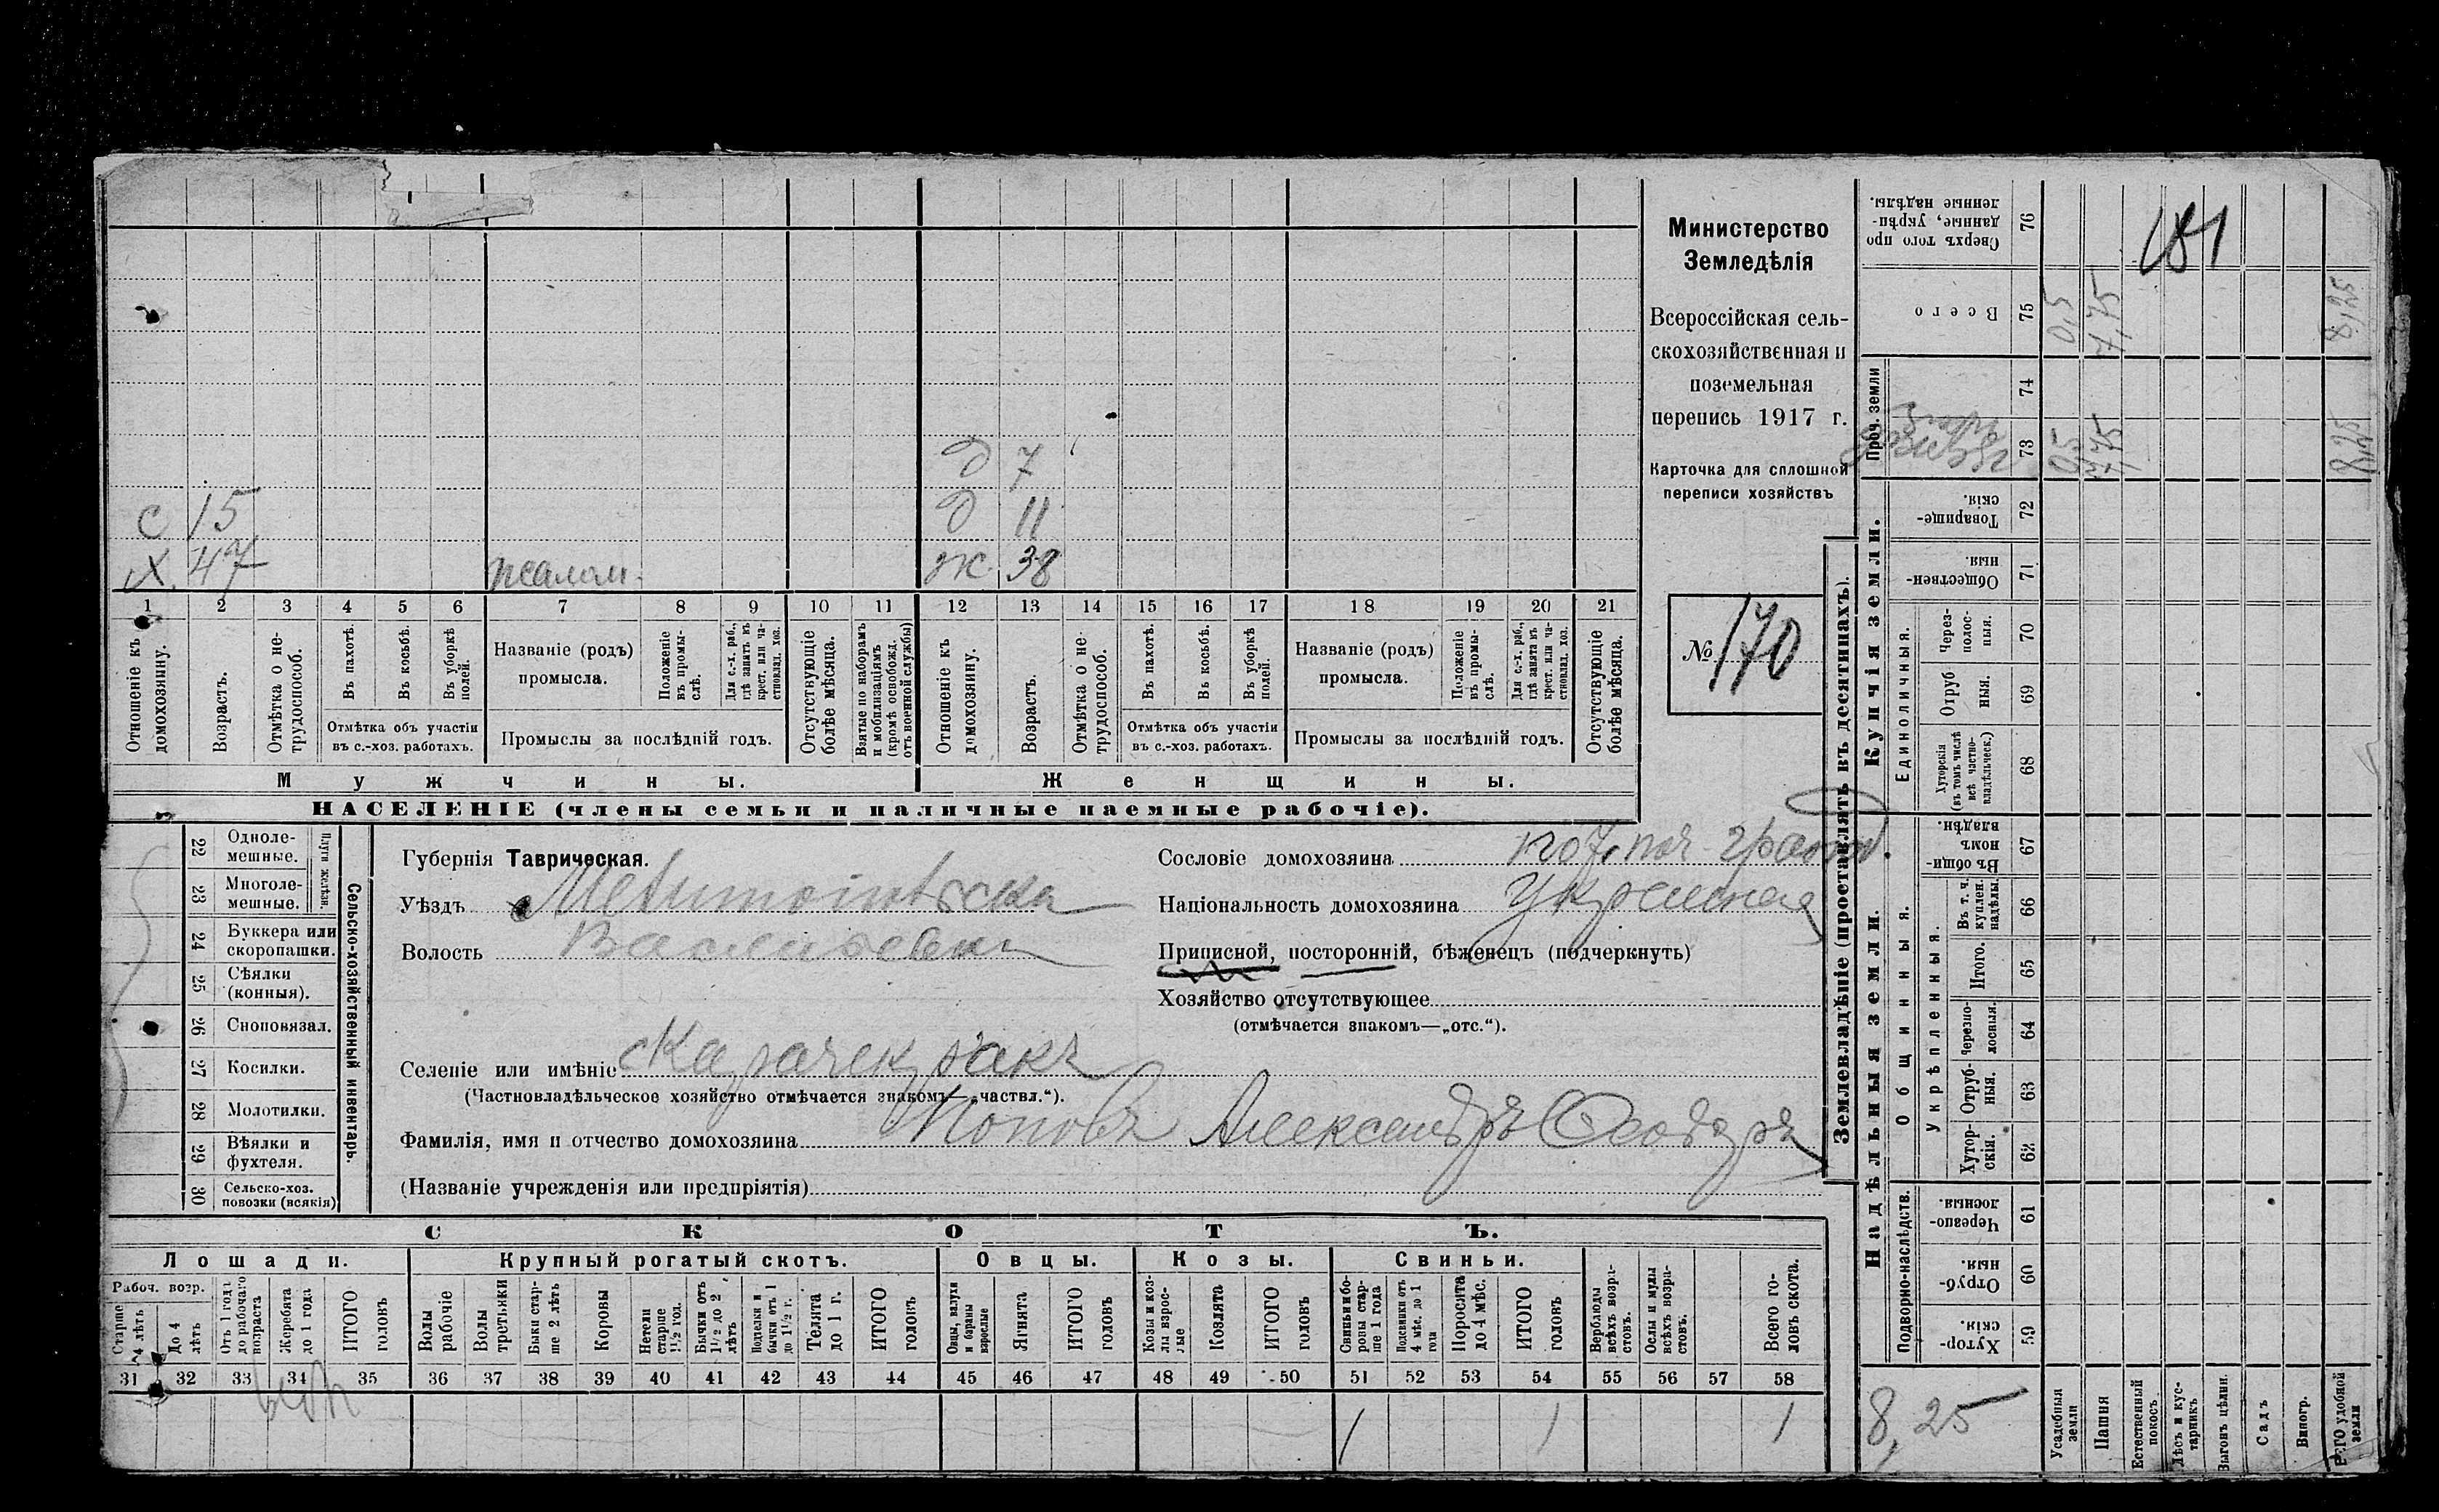 Министерство
Земледѣлія
Всероссійская сель-
скохозяйственная и
поземельная
перепись 1917 г.
Карточка для сплошной
переписи хозяйствъ
№ 170
Д 7
С 15
Д 11
Х. 47
псалом.
Ж. 38
1 2 3 4 5 6 7 8 9 10 11 12 13 14 15 16 17 18 19 20 21
Отношеніе къ домохозяину.
Возрастъ.
Отмѣтка о не-трудоспособ.
Въ пахотѣ.
Въ косьбѣ.
Въ уборкѣ полей.
Отмѣтка объ участіи
въ с.-хоз. работахъ.
Названіе (родъ)
промысла.
Положеніе въ промы-слѣ.
Для с.-х. раб., гдѣ занятъ въ крест. или ча-стновлад. хоз.
Промыслы за послѣдній годъ.
Отсутствующіе болѣе мѣсяца.
Взятые по наборамъ и мобилизаціямъ (кромѣ освобожд. отъ военной службы)
Отношеніе къ домохозяину.
Возрастъ.
Отмѣтка о не-трудоспособ.
Въ пахотѣ.
Въ косьбѣ.
Въ уборкѣ полей.
Отмѣтка объ участіи
въ с.-хоз. работахъ.
Названіе (родъ)
промысла.
Положеніе въ промы-слѣ.
Для с.-х. раб., гдѣ занята въ крест. или ча-стновлад. хоз.
Промыслы за послѣдній годъ.
Отсутствующіе болѣе мѣсяца.
Мужчины.
Женщины.
НАСЕЛЕНІЕ (члены семьи и наличные наемные рабочіе).
22 Одноле-мешные.
23 Многоле-мешные.
Плуги желѣзн.
24 Буккера или скоропашки.
25 Сѣялки (конныя).
26 Сноповязал.
27 Косилки.
28 Молотилки.
29 Вѣялки и фухтеля.
30 Сельско-хоз. повозки (всякія)
Сельско-хозяйственный инвентарь.
Губернія Таврическая.
Уѣздъ
Волость
Селеніе или имѣніе
(Частновладѣльческое хозяйство отмѣчается знакомъ—„частвл.“).
Фамилія, имя и отчество домохозяина Поповъ Александръ
(Названіе учрежденія или предпріятія)
Сословіе домохозяина
Національность домохозяина
Приписной, посторонній, бѣженецъ (подчеркнуть)
Хозяйство отсутствующее
(отмѣчается знакомъ—„отс.“).
СКОТЪ.
Лошади.
Крупный рогатый скотъ.
Овцы.
Козы.
Свиньи.
Рабоч. возр.
Старше 4 лѣтъ
До 4 лѣтъ
Отъ 1 года до рабочаго возраста
Жеребята до 1 года
ИТОГО головъ
Волы рабочіе
Волы третьяки
Быки стар-ше 2 лѣтъ
Коровы
Нетели старше 1½ год.
Бычки отъ 1½ до 2 лѣтъ
Подтелки и бычки отъ 1 до 1½ г.
Телята до 1 г.
ИТОГО головъ
Овцы, валухи и бараны взрослые
Ягнята
ИТОГО головъ
Козы и коз-лы взрос-лые
Козлята
ИТОГО головъ
Свиньи и бо-ровы стар-ше 1 года
Подсвинки отъ 4 мѣс. до 1 года
Поросята до 4 мѣс.
ИТОГО головъ
Верблюды всѣхъ возра-стовъ.
Ослы и мулы всѣхъ возра-стовъ.
Всего го-ловъ скота.
31 32 33 34 35 36 37 38 39 40 41 42 43 44 45 46 47 48 49 50 51 52 53 54 55 56 57 58
1 1 1
Землевладѣніе (проставлять въ десятинахъ).
Надѣльныя земли.
Купчія земли.
Проч. земли
Подворно-наслѣдств.
Общинныя.
Укрѣпленныя.
Единоличныя.
76 Сверхъ того про данные, укрѣп-ленные надѣлы.
75 Всего
74
73
72 Товарище-скія.
71 Обществен-ныя.
70 Через-полос-ныя.
69 Отруб ныя.
68 Хуторскія (въ томъ числѣ всѣ частно-владѣльческ.)
67 Въ общи-номъ владѣн.
66 Въ т. ч. куплен. надѣлы.
65 Итого.
64 Черезпо-лосныя.
63 Отруб-ныя.
62 Хутор-скія.
61 Черезпо-лосныя.
60 Отруб-ныя.
59 Хутор-скія.
181
0,5 7,75 8,25
0,5 7,75 8,25
8,25
Усадебныя земли
Пашня
Естественный покосъ
Лѣсъ и кус-тарникъ
Выгонъ цѣлин.
Садъ
Виногр.
ВСЕГО удобной земли